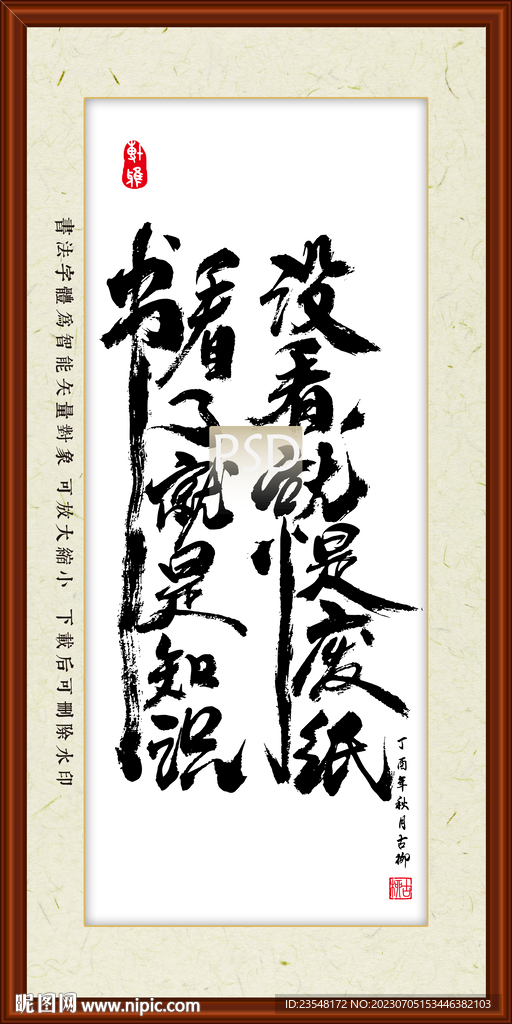 軒雅
书
看了就是知识
没看就是废纸
丁酉年秋月古柳
古柳
書法字體為智能矢量對象 可放大縮小 下載后可刪除水印
PSD
昵图网 www.nipic.com
ID:23548172 NO:20230705153446382103